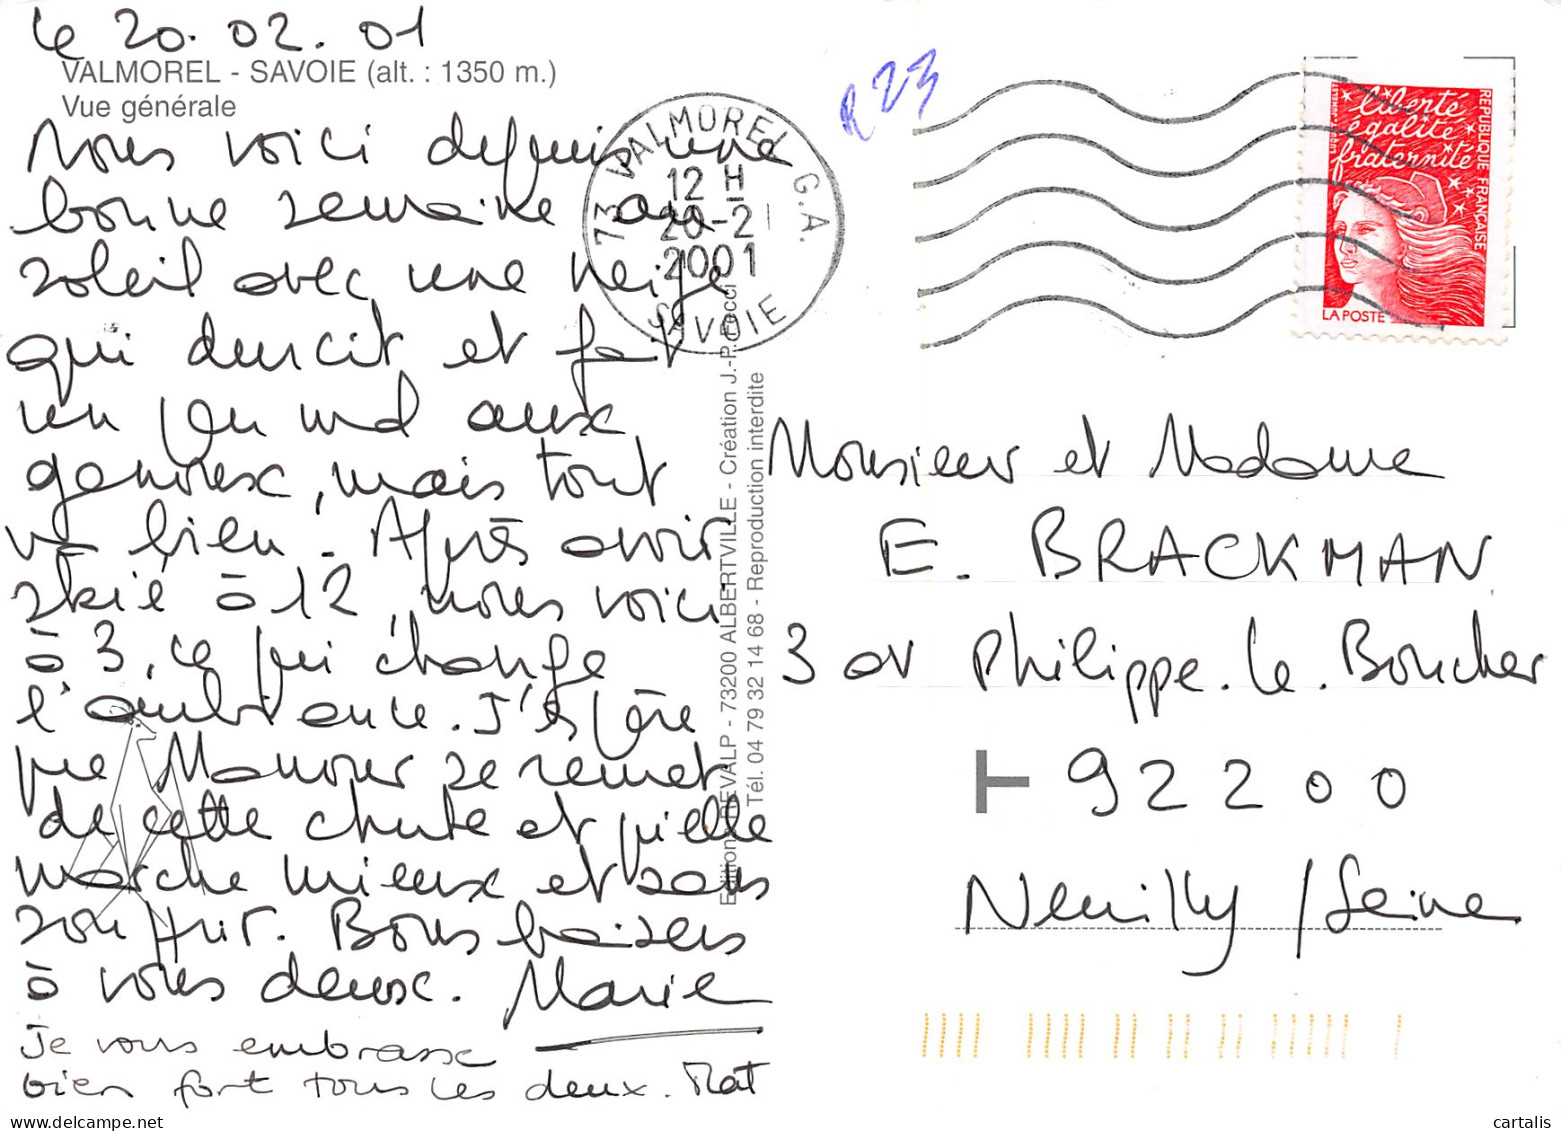 Le 20.02.01
VALMOREL - SAVOIE (alt. : 1350 m.)
Vue générale
Nous voici depuis une
bonne semaine au
soleil avec une neige
qui durcit et fait
un peu mal aux
genoux, mais tout
va bien. Après avoir
skié à 12, nous voici
à 3, ce qui change
l'ambiance. J'espère
que Mamour se remet
de cette chute et qu'elle
marche mieux et sans
souffrir. Bons baisers
à vous deux. Marie
Je vous embrasse
bien fort tous les deux. Mat
Editions REVALP - 73200 ALBERTVILLE - Création J.-P. Cocci
Tél. 04 79 32 14 68 - Reproduction interdite
73 VALMOREL G.A.
12 H
20-2
2001
SAVOIE
R23
liberté
égalité
fraternité
REPUBLIQUE FRANÇAISE
LA POSTE
Monsieur et Madame
E. BRACKMAN
3 av Philippe.le.Boucher
92200
Neuilly / Seine
cartalis